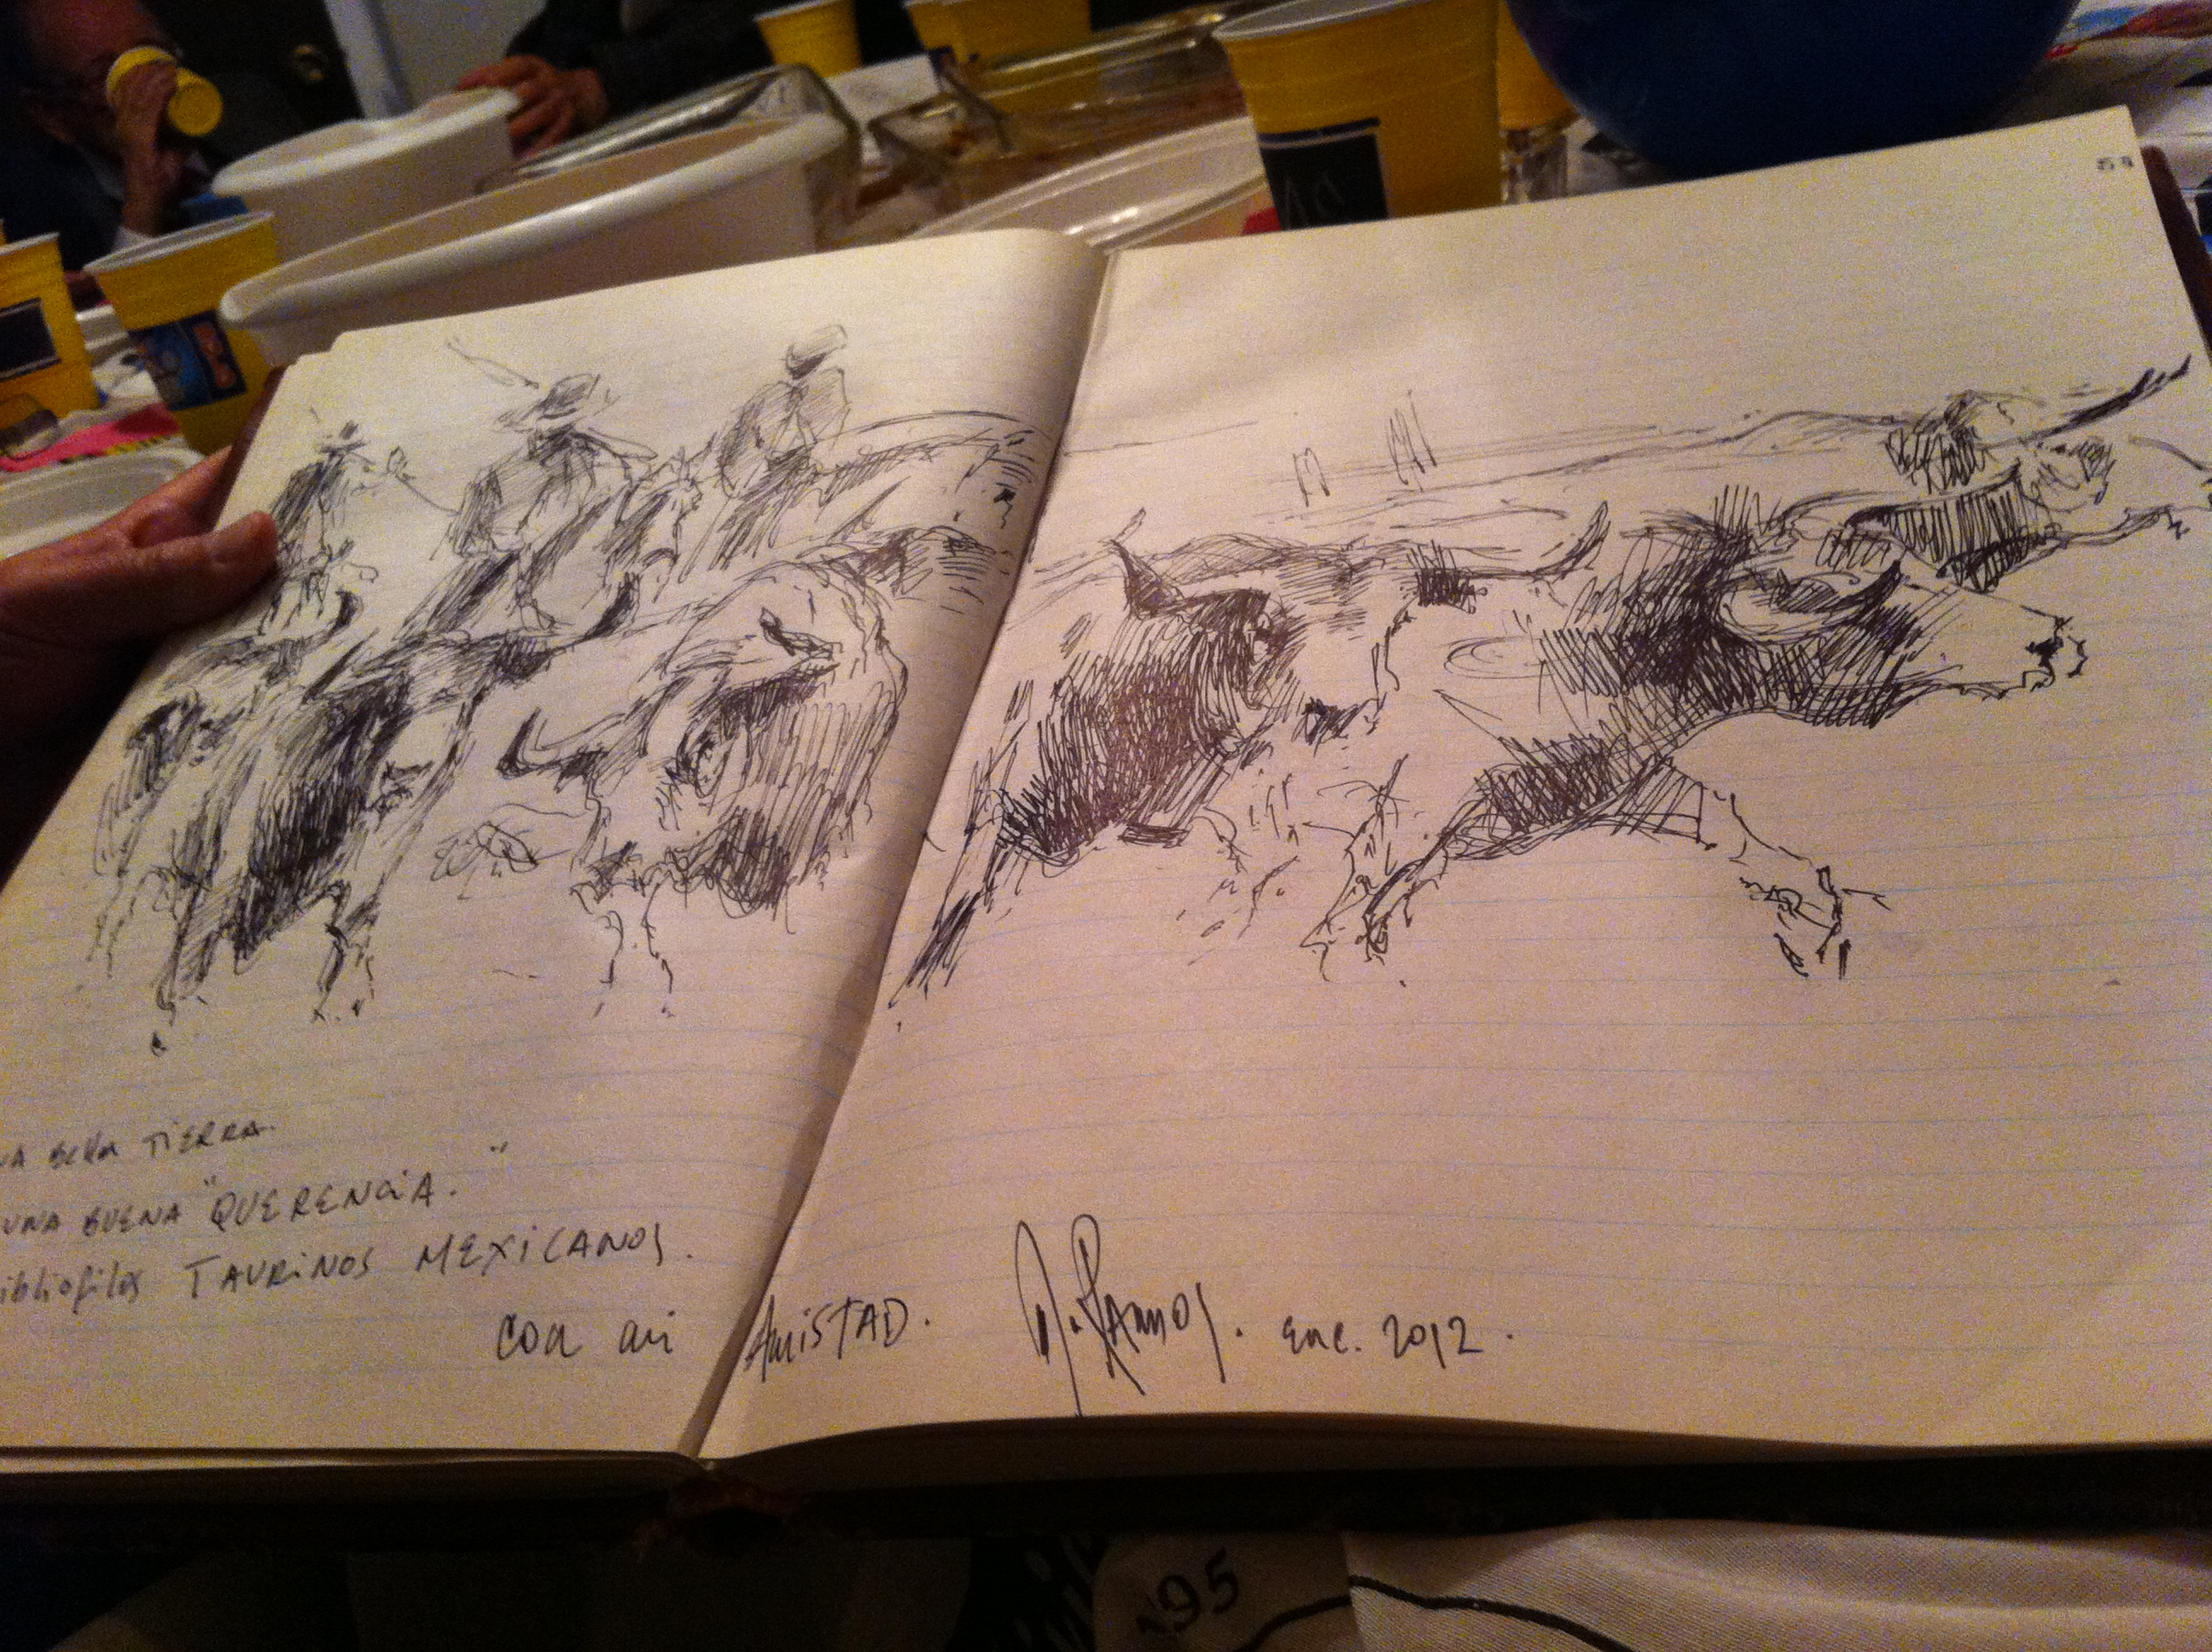 59
BELLA TIERRA.
UNA BUENA "QUERENCIA."
TAURINOS MEXICANOS.
CON MI AMISTAD. Ramos. Ene. 2012.
95